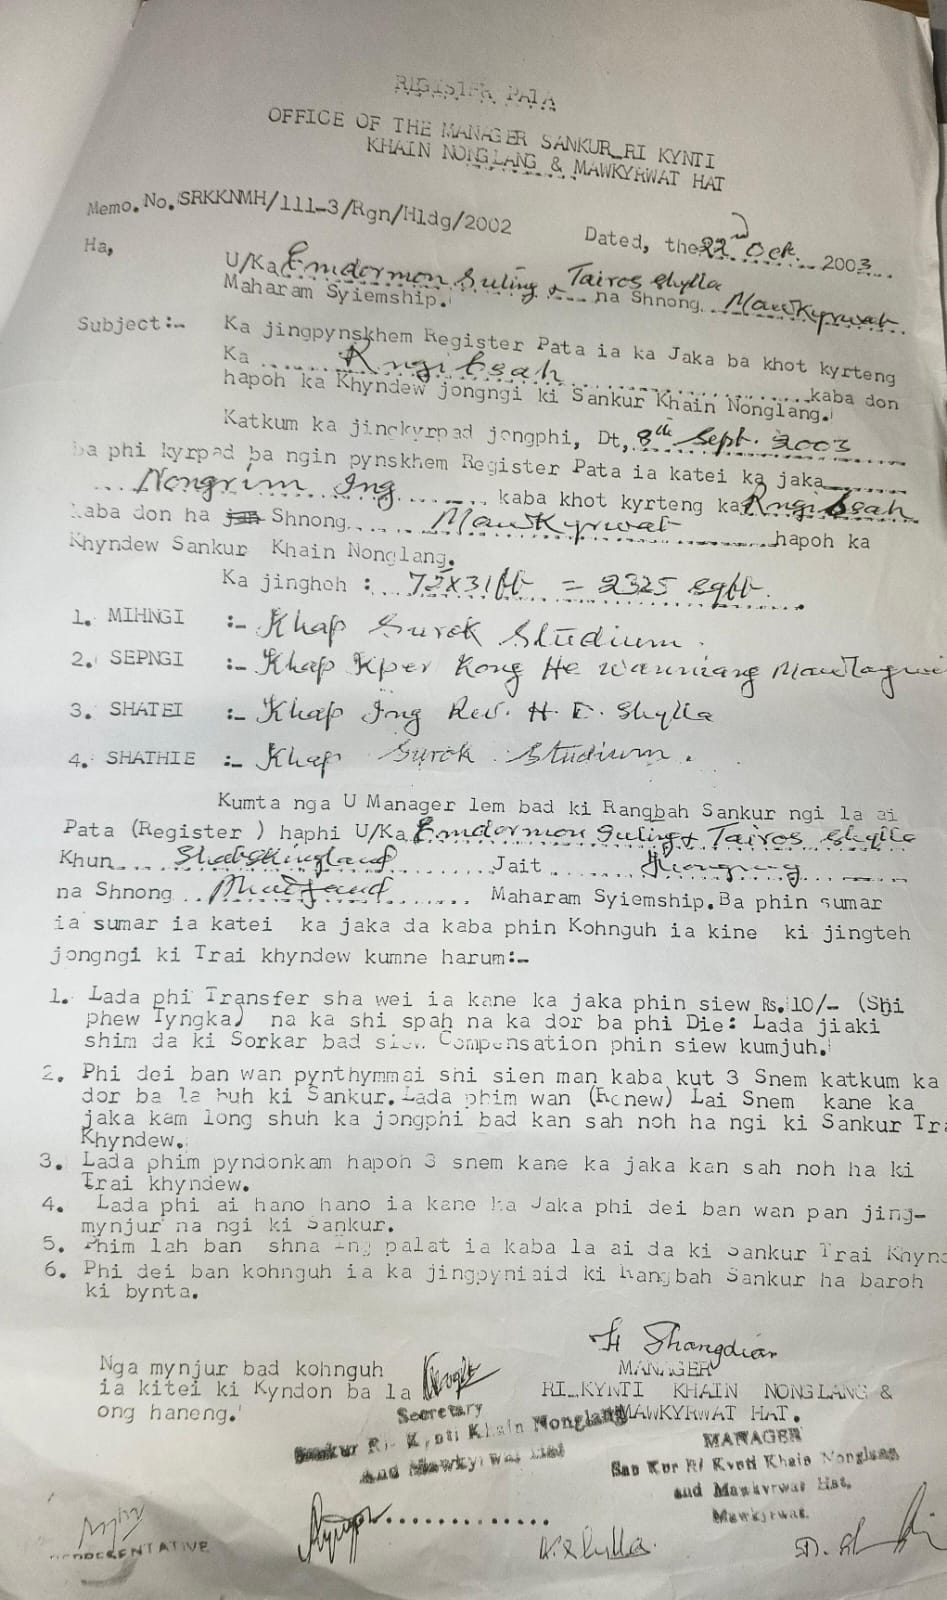 REGISTER PATA
OFFICE OF THE MANAGER SANKUR RI KYNTI
KHAIN NONGLANG & MAWKYRWAT HAT
Memo.No.SRKKNMH/111-3/Rgn/Hldg/2002
Dated, the 22nd Oct. 2003
Ha,
U/Ka Emdormon Suling & Tairos Shylla
Maharam Syiemship. na Shnong Mawkyrwat
Subject:- Ka jingpynskhem Register Pata ia ka Jaka ba khot kyrteng
Ka Rngi Ksah kaba don
hapoh ka Khyndew jongngi ki Sankur Khain Nonglang.
Katkum ka jingkyrpad jongphi, Dt, 8th Sept. 2003
ba phi kyrpad ba ngin pynskhem Register Pata ia katei ka jaka
Nongrim Ing kaba khot kyrteng ka Rngi Ksah
kaba don ha Shnong Mawkyrwat hapoh ka
Khyndew Sankur Khain Nonglang.
Ka jingheh : 75x31ft = 2325 sqft.
1. MIHNGI :- Khap Surok Studium.
2. SEPNGI :- Khap Kper Kong He Wanniang
3. SHATEI :- Khap Ing Rev. H. E. Shylla
4. SHATHIE :- Khap Surok Studium.
Kumta nga U Manager lem bad ki Rangbah Sankur ngi la ai
Pata (Register ) haphi U/Ka Emdormon Suling & Tairos Shylla
Khun Jait
na Shnong Maharam Syiemship.Ba phin sumar
ia sumar ia katei ka jaka da kaba phin Kohnguh ia kine ki jingteh
jongngi ki Trai khyndew kumne harum:-
1. Lada phi Transfer sha wei ia kane ka jaka phin siew Rs.10/- (Shi
phew Tyngka) na ka shi spah na ka dor ba phi Die: Lada jiaki
shim da ki Sorkar bad siew Compensation phin siew kumjuh.
2. Phi dei ban wan pynthymmai shi sien man kaba kut 3 Snem katkum ka
dor ba la buh ki Sankur.Lada phim wan (Renew) Lai Snem kane ka
jaka kam long shuh ka jongphi bad kan sah noh ha ngi ki Sankur Tra
Khyndew.
3. Lada phim pyndonkam hapoh 3 snem kane ka jaka kan sah noh ha ki
Trai khyndew.
4. Lada phi ai hano hano ia kane ka Jaka phi dei ban wan pan jing-
mynjur na ngi ki Sankur.
5. Phim lah ban shna Ing palat ia kaba la ai da ki Sankur Trai Khynd
6. Phi dei ban kohnguh ia ka jingpyniaid ki Rangbah Sankur ha baroh
ki bynta.
H Shangdiar
Nga mynjur bad kohnguh
ia kitei ki Kyndon ba la
ong haneng.
MANAGER
RI KYNTI KHAIN NONGLANG &
MAWKYRWAT HAT.
Secretary
Sankur Ri Kynti Khain Nonglang
And Mawkyrwat Hat
MANAGER
San Kur Ri Kynti Khain Nonglang
and Mawkyrwat Hat,
Mawkyrwat.
REPRESENTATIVE
K. Shylla.